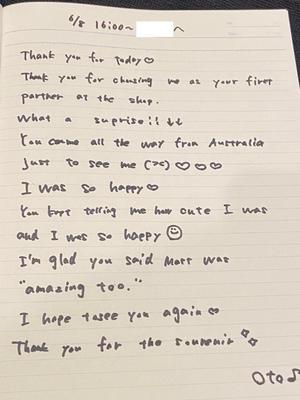 6/8 16:00~ ~
Thank you for today♡
Thank you for chusing me as your first
partner at the shop.
What a suprise!! ↓↓
You come all the way from Australia
just to see me (><) ♡♡♡
I was so happy♡
You kept telling me how cute I was
and I was so happy ☺
I'm glad you said Matt was
"amazing too."
I hope tosee you again♡
Thank you for the souvenir ✧✧
Oto♪